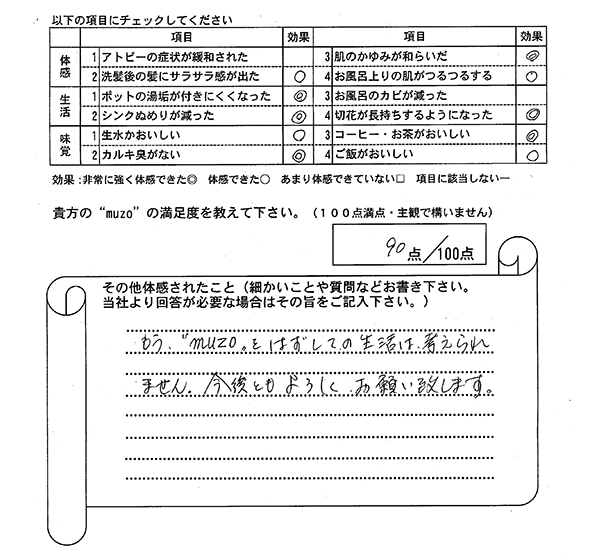 以下の項目にチェックしてください
項目 効果 項目 効果
体感 1 アトピーの症状が緩和された 3 肌のかゆみが和らいだ ◎
2 洗髪後の髪にサラサラ感が出た ○ 4 お風呂上りの肌がつるつるする ○
生活 1 ポットの湯垢が付きにくくなった ◎ 3 お風呂のカビが減った
2 シンクぬめりが減った ◎ 4 切花が長持ちするようになった ◎
味覚 1 生水かおいしい ○ 3 コーヒー・お茶がおいしい ◎
2 カルキ臭がない ◎ 4 ご飯がおいしい ○
効果:非常に強く体感できた◎ 体感できた○ あまり体感できていない□ 項目に該当しない―
貴方の“muzo”の満足度を教えて下さい。(100点満点・主観で構いません)
90点/100点
その他体感されたこと(細かいことや質問などお書き下さい。
当社より回答が必要な場合はその旨をご記入下さい。)
もう、“muzo„をはずしての生活は、考えられ
ません。今後ともよろしくお願い致します。